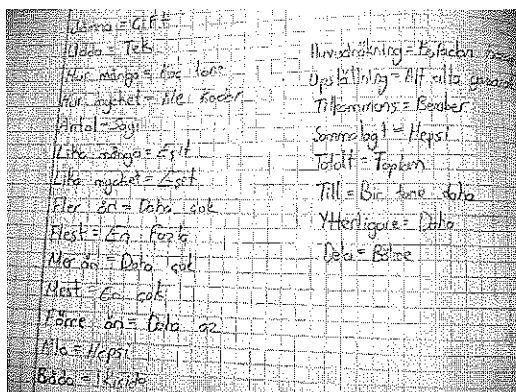 Jämna = Çift
Udda = Tek
Hur många = Kaç tane
Hur mycket = Ne kadar
Antal = Sayı
Lika många = Eşit
Lika mycket = Eşit
Fler än = Daha çok
Flest = En Fazla
Mer än = Daha çok
Mest = En çok
Färre än = Daha az
Alla = Hepsi
Båda = İkiside
Huvudräkning = Kafadan
Uppställning = Alt alta
Tillsammans = Beraber
Sammalagt = Hepsi
Totalt = Toplam
Till = Bir tane daha
Ytterligare = Daha
Dela = Bölme